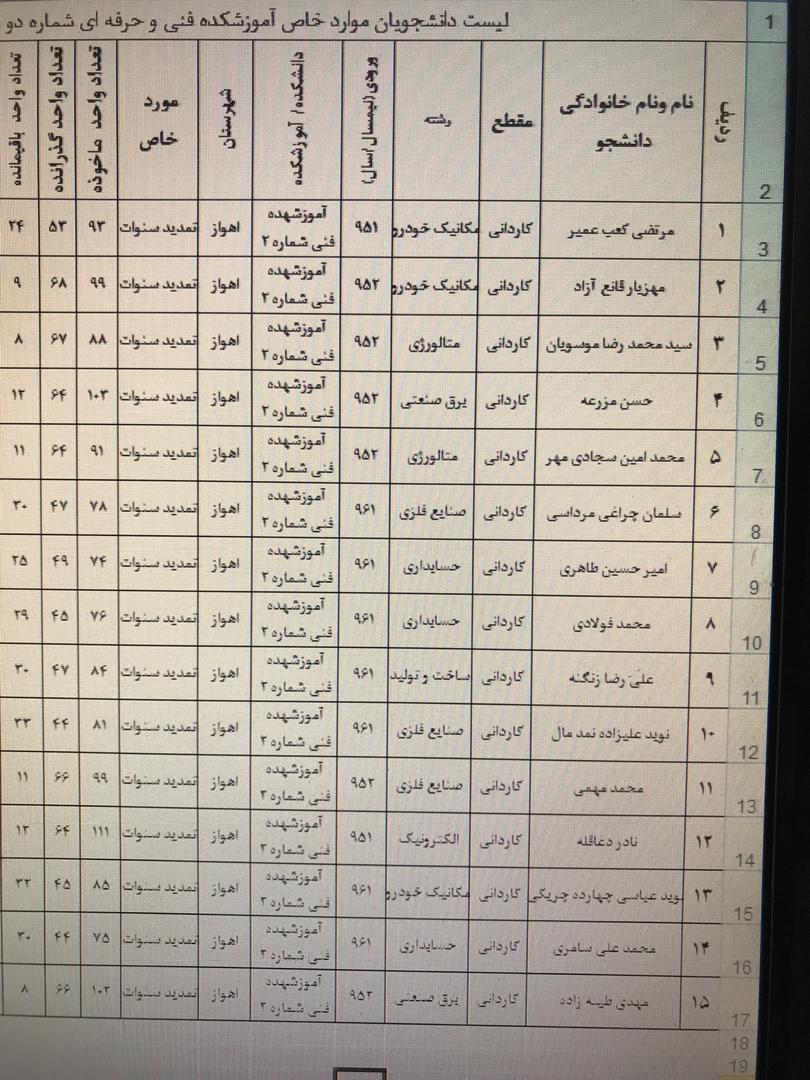 1
لیست دانشجویان موارد خاص آموزشکده فنی و حرفه ای شماره دو
2
ردیف | نام ونام خانوادگی دانشجو | مقطع | رشته | ورودی(نیمسال/سال) | دانشکده/ آموزشکده | شهرستان | مورد خاص | تعداد واحد ماخوذه | تعداد واحد گذرانده | تعداد واحد باقیمانده
3 | ۱ | مرتضی کعب عمیر | کاردانی | مکانیک خودرو | ۹۵۱ | آموزشهده فنی شماره ۲ | اهواز | تمدید سنوات | ۹۳ | ۵۳ | ۲۴
4 | ۲ | مهزیار قانع آزاد | کاردانی | مکانیک خودرو | ۹۵۲ | آموزشهده فنی شماره ۲ | اهواز | تمدید سنوات | ۹۹ | ۶۸ | ۹
5 | ۳ | سید محمد رضا موسویان | کاردانی | متالورژی | ۹۵۲ | آموزشهده فنی شماره ۲ | اهواز | تمدید سنوات | ۸۸ | ۶۷ | ۸
6 | ۴ | حسن مزرعه | کاردانی | برق صنعتی | ۹۵۲ | آموزشهده فنی شماره ۲ | اهواز | تمدید سنوات | ۱۰۳ | ۶۴ | ۱۲
7 | ۵ | محمد امین سجادی مهر | کاردانی | متالورژی | ۹۵۲ | آموزشهده فنی شماره ۲ | اهواز | تمدید سنوات | ۹۱ | ۶۴ | ۱۱
8 | ۶ | سلمان چراغی مرداسی | کاردانی | صنایع فلزی | ۹۶۱ | آموزشهده فنی شماره ۲ | اهواز | تمدید سنوات | ۷۸ | ۴۷ | ۳۰
9 | ۷ | امیر حسین طاهری | کاردانی | حسابداری | ۹۶۱ | آموزشهده فنی شماره ۲ | اهواز | تمدید سنوات | ۷۴ | ۴۹ | ۲۵
10 | ۸ | محمد فولادی | کاردانی | حسابداری | ۹۶۱ | آموزشهده فنی شماره ۲ | اهواز | تمدید سنوات | ۷۶ | ۴۵ | ۲۹
11 | ۹ | علی رضا زنگنه | کاردانی | ساخت و تولید | ۹۶۱ | آموزشهده فنی شماره ۲ | اهواز | تمدید سنوات | ۸۴ | ۴۷ | ۳۰
12 | ۱۰ | نوید علیزاده نمد مال | کاردانی | صنایع فلزی | ۹۶۱ | آموزشهده فنی شماره ۲ | اهواز | تمدید سنوات | ۸۱ | ۴۴ | ۳۳
13 | ۱۱ | محمد مهمی | کاردانی | صنایع فلزی | ۹۵۲ | آموزشهده فنی شماره ۲ | اهواز | تمدید سنوات | ۹۹ | ۶۶ | ۱۱
14 | ۱۲ | نادر دغاقله | کاردانی | الکترونیک | ۹۵۱ | آموزشهده فنی شماره ۲ | اهواز | تمدید سنوات | ۱۱۱ | ۶۴ | ۱۲
15 | ۱۳ | نوید عباسی چهارده چریکی | کاردانی | مکانیک خودرو | ۹۶۱ | آموزشهده فنی شماره ۲ | اهواز | تمدید سنوات | ۸۵ | ۴۵ | ۳۲
16 | ۱۴ | محمد علی سامری | کاردانی | حسابداری | ۹۶۱ | آموزشهده فنی شماره ۲ | اهواز | تمدید سنوات | ۷۵ | ۴۴ | ۳۰
17 | ۱۵ | مهدی طیبه زاده | کاردانی | برق صنعتی | ۹۵۲ | آموزشهده فنی شماره ۲ | اهواز | تمدید سنوات | ۱۰۲ | ۶۶ | ۸
18
19